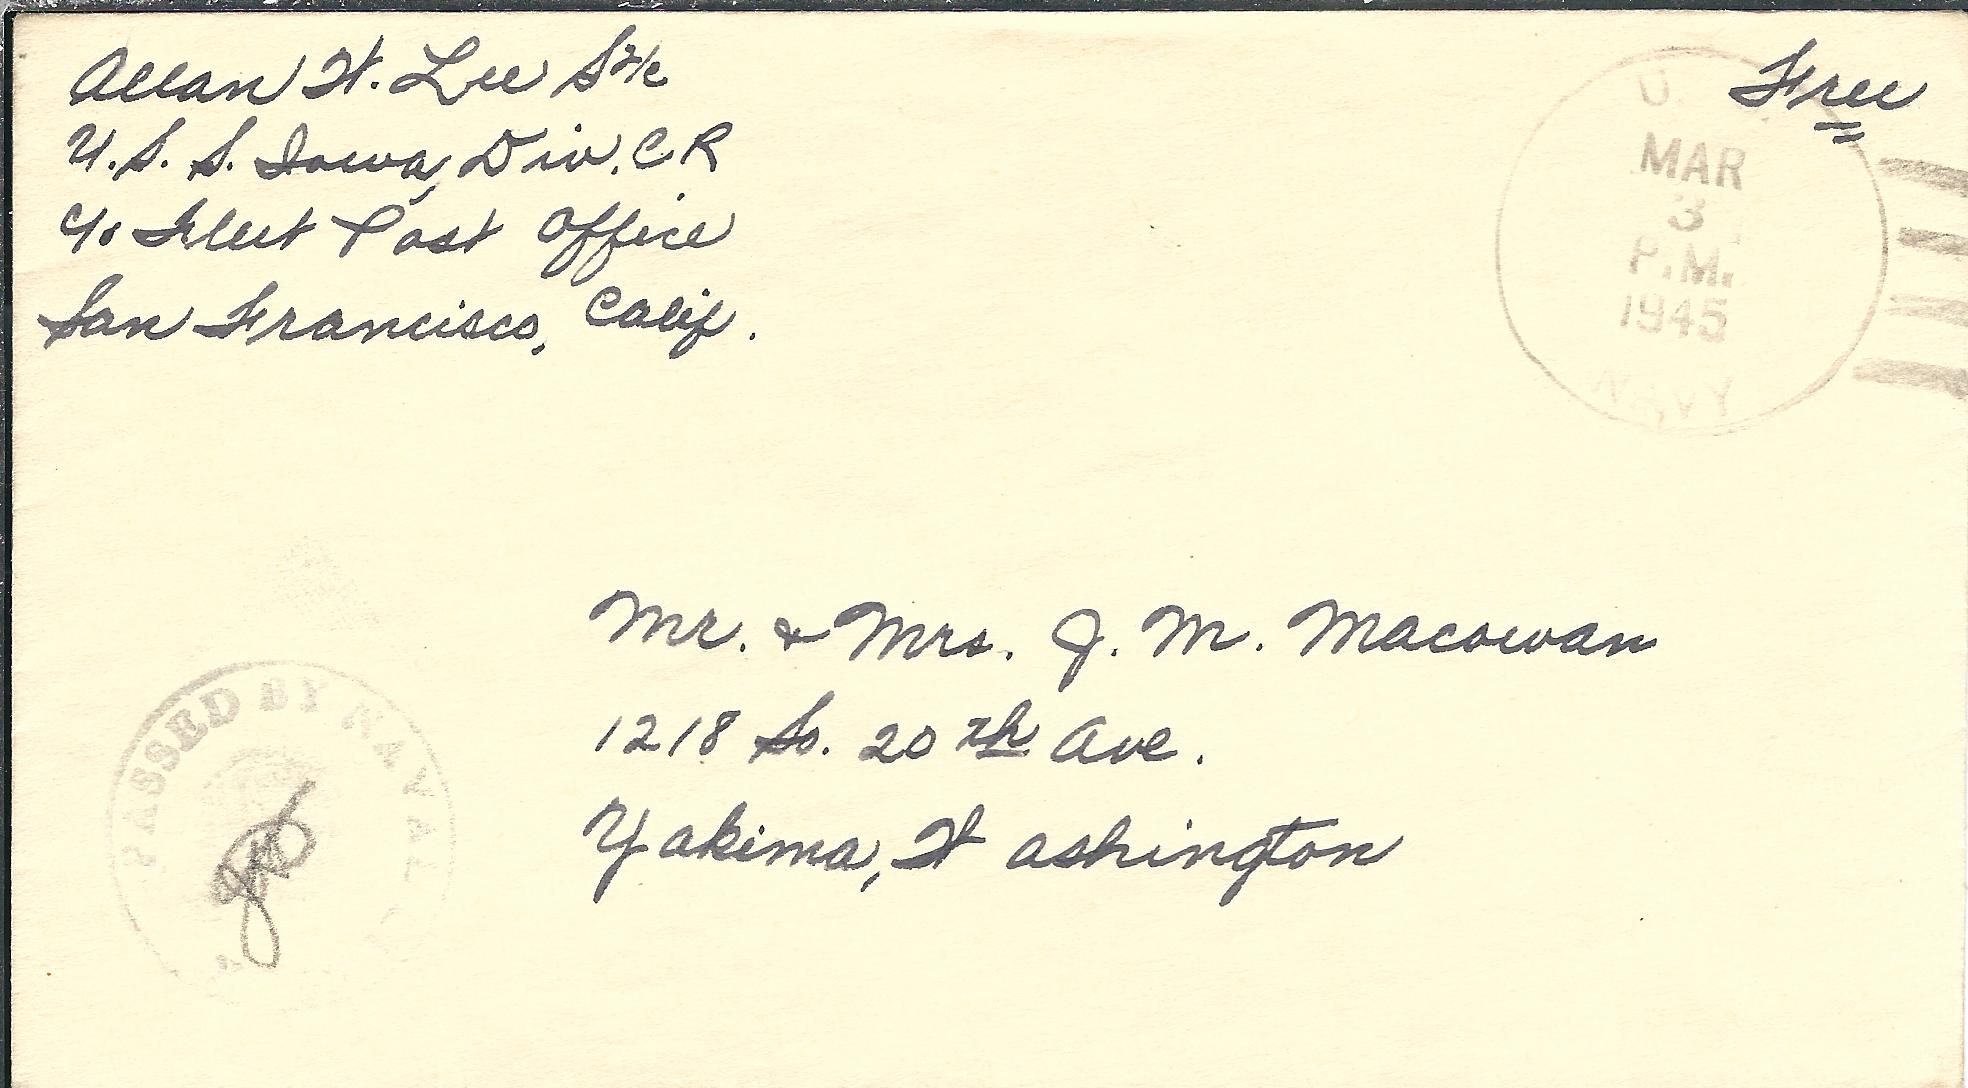 Allan W. Lee S2/c
U.S.S. Iowa, Div. CR
c/o Fleet Post Office
San Francisco, Calif.
Free
U.
MAR
3
P.M.
1945
NAVY
Mr. & Mrs. J. M. Macowan
1218 So. 20th Ave.
Yakima, Washington
PASSED BY NAVAL